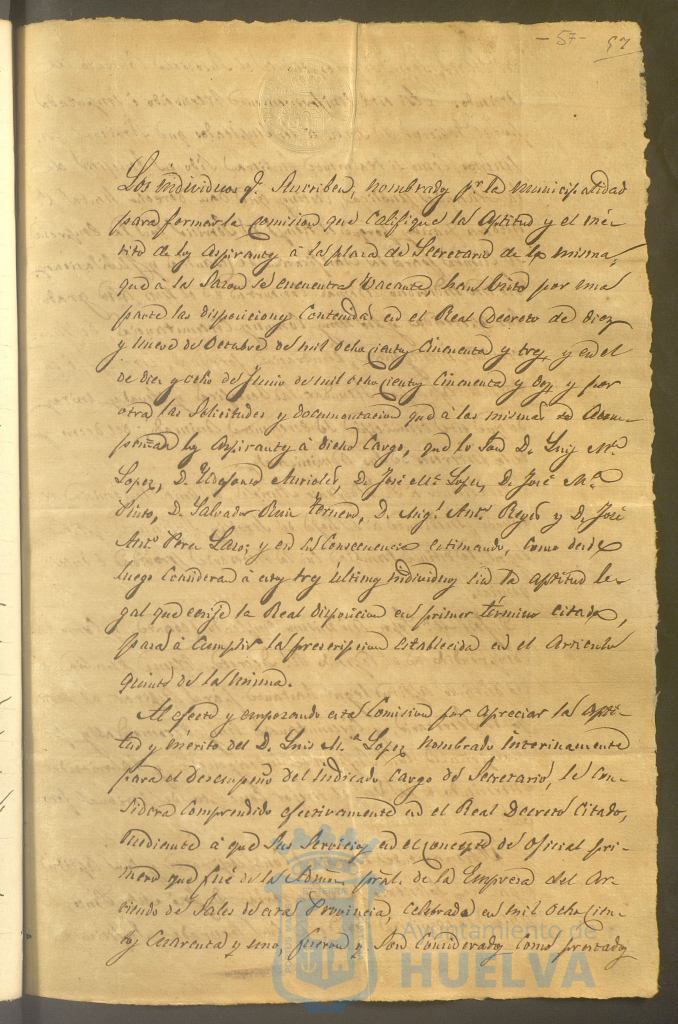 - 57 - 57
Los individuos q.e suscriben, nombrados p.r la municipalidad
para formar la Comision que califique la Aptitud y el mé-
rito de los Aspirantes á la plaza de Secretario de la misma,
que á la sazon se encuentra vacante, han visto por una
parte las disposiciones contenidas en el Real Decreto de diez
y nueve de Octubre de mil ocho cientos cincuenta y tres, y en el
de diez y ocho de Junio de mil ocho cientos cincuenta y dos, y por
otra las solicitudes y documentacion que á las mismas
los Aspirantes á dicho Cargo, que lo son D. Luis M.a
Lopez, D. Ildefonso D. José M.a Lopez, D. José M.a
Pinto, D. Salvador Ruiz D. Mig.l Ant.o Reyes y D. José
Ant.o Perez y en su consecuencia estimando, como desde
luego á estos tres últimos individuos sin la aptitud le-
gal que exije la Real disposicion en primer término citada,
pasa á cumplir la prescripcion establecida en el Articulo
quinto de la misma.
Al efecto y empezando esta Comision por apreciar la apti-
tud y mérito del D. Luis M.a Lopez nombrado interinamente
para el desempeño del indicado Cargo de Secretario, le con-
sidera comprendido efectivamente en el Real Decreto citado,
mediante á que sus servicios en el concepto de oficial pri-
mero que fué de la Admon. pral. de la Empresa del Ar-
riendo de Sales de esta Provincia, celebrado en mil ocho cien-
tos cuarenta y uno, fueron y son considerados como prestados
Ayuntamiento de
HUELVA